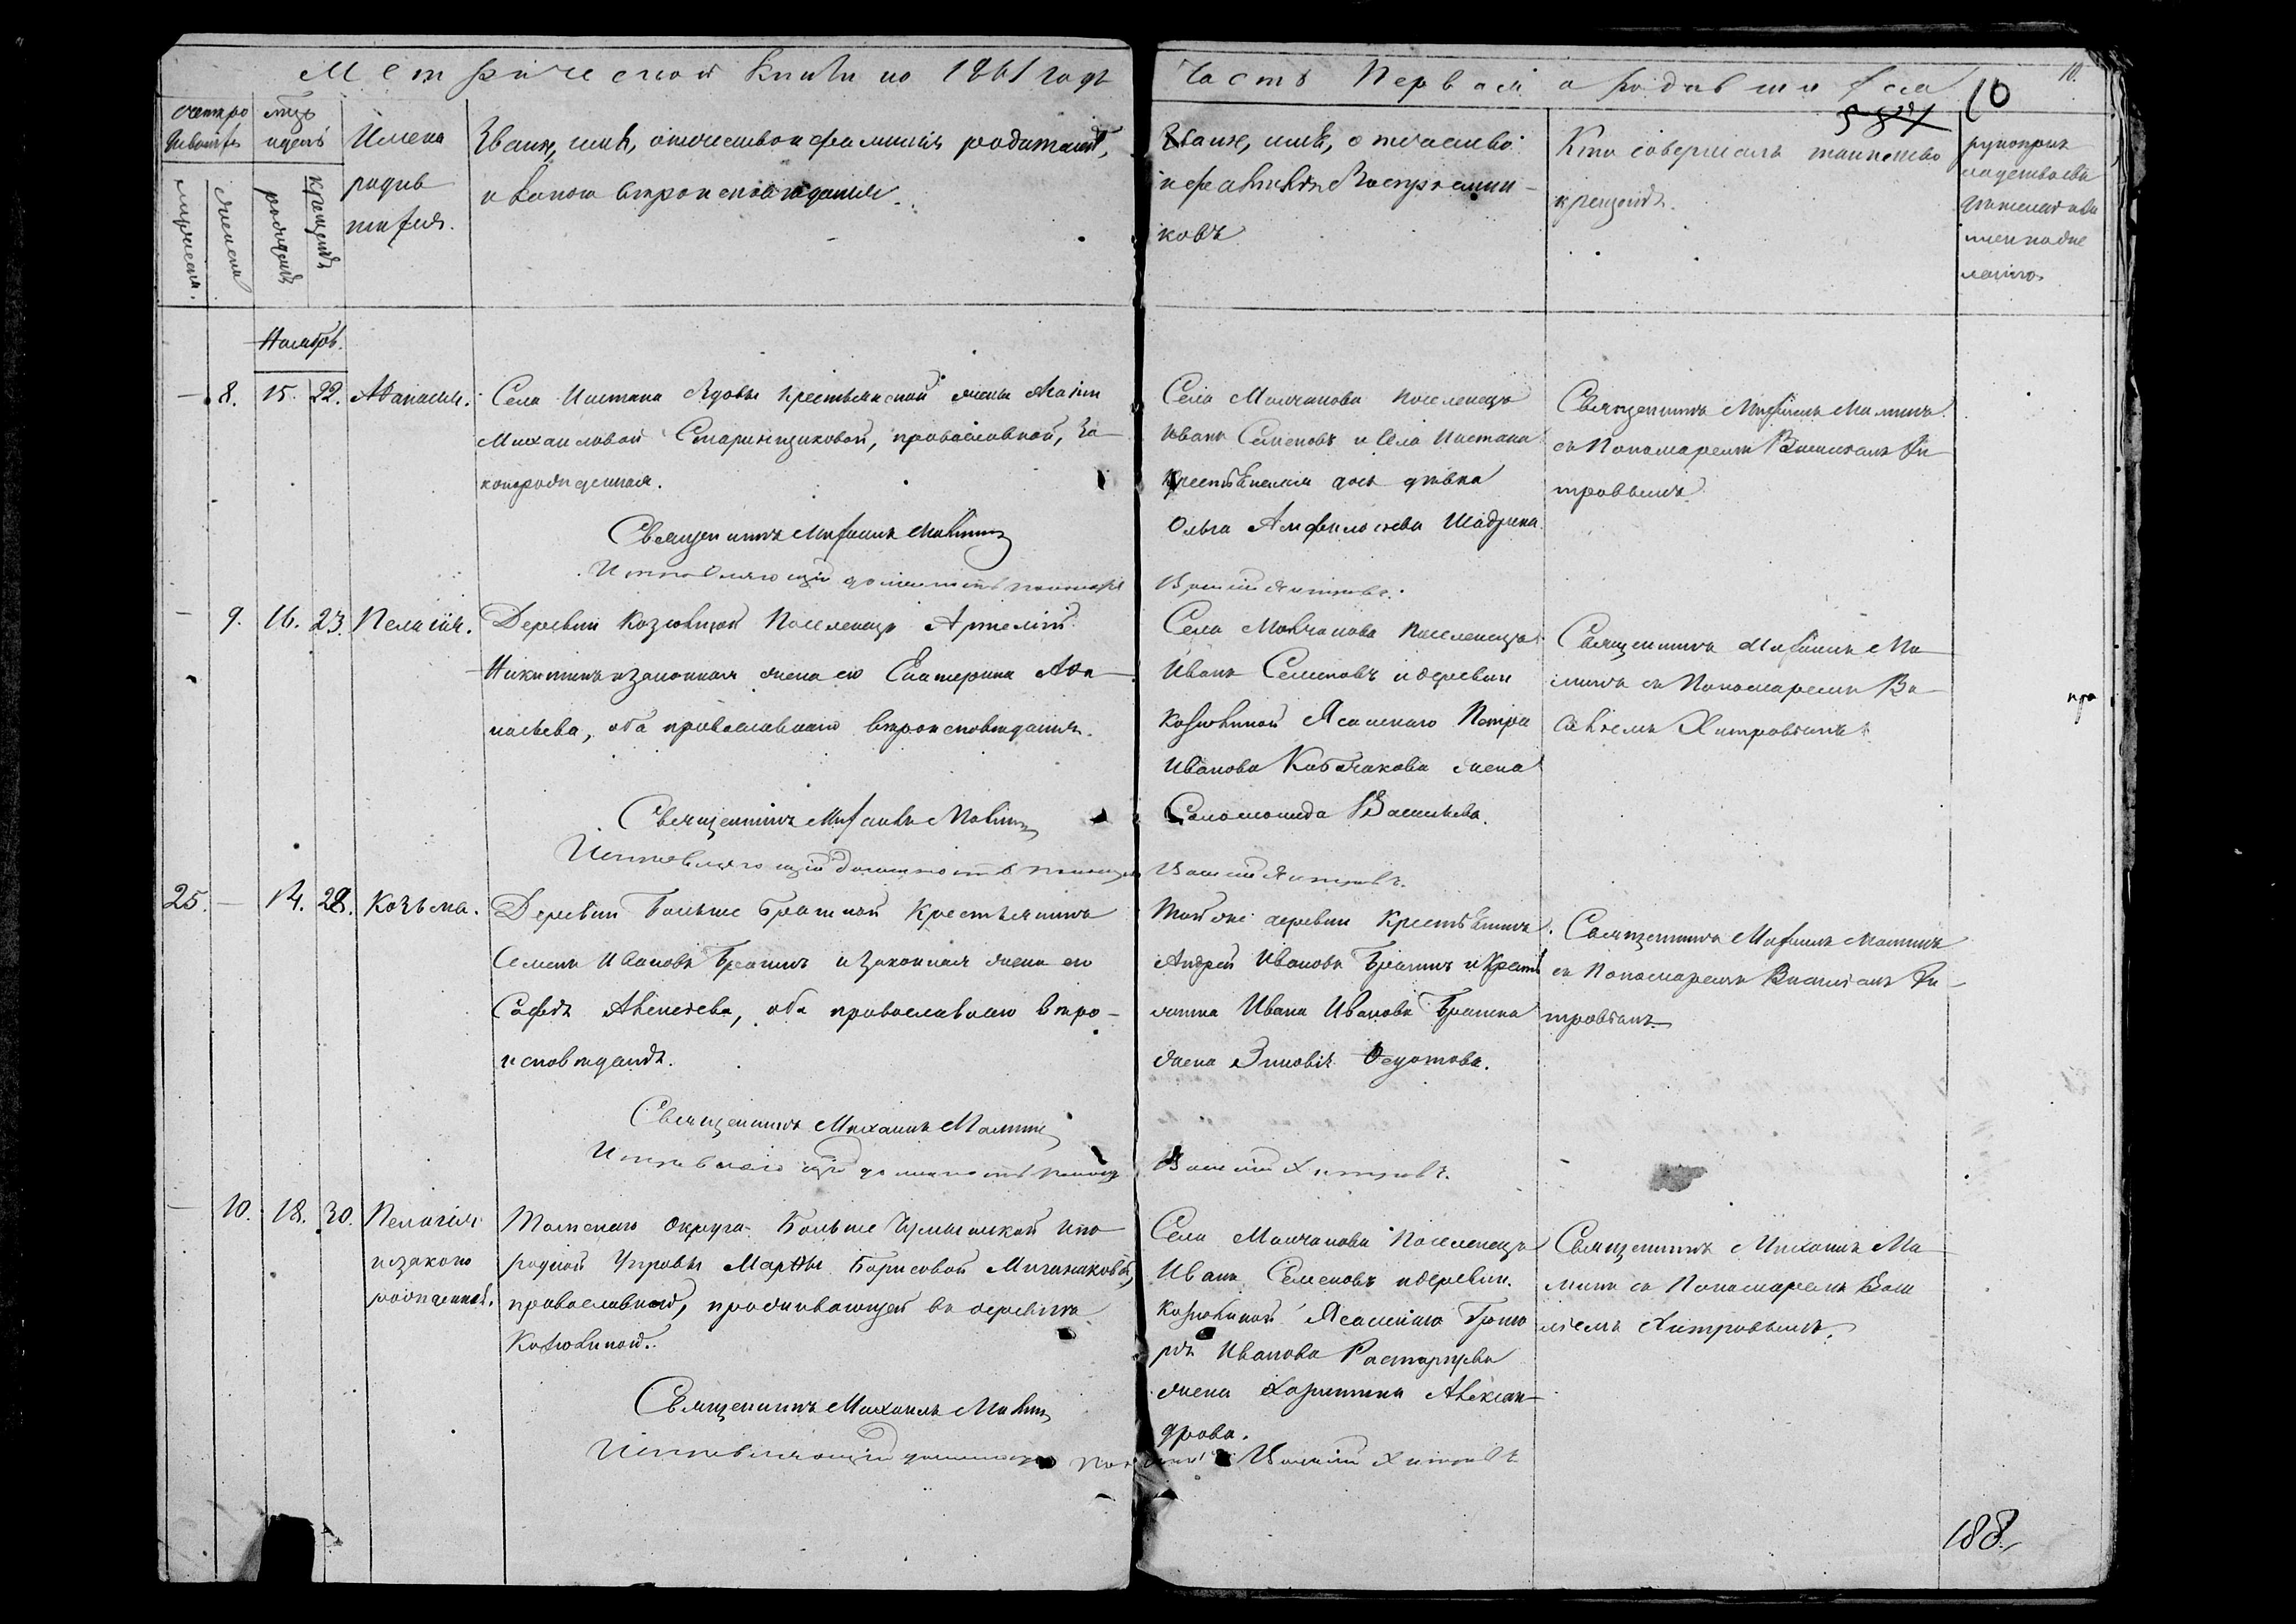 Метрической книги на 1861 годъ
Часть Первая о родившихся
10
10.
Счетъ ро
дившихся
мужеска.
женска
Мѣсяцъ
и день
рожденія
крещенія
Имена
родив
шихся.
Званіе, имя, отчество и фамилія родителей,
и какого вѣроисповѣданія.
Званіе, имя, отчество
и фамилія Воспріемни-
ковъ
Кто совершалъ таинство
крещенія.
рукоприк
ладство сви
дѣтелей
Ноябрь.
— 8. 15. 22. Аѳанасія.
Села Иштана Вдовы Крестьянской жены Агаѳіи
Михайловой Старинщиковой, православной, за-
коннорожденная.
Священникъ Михаилъ Малинъ
Исправляющій должность пономаря
Села Молчанова Поселенецъ
Иванъ Семеновъ и Села Иштана
Крестьянская дочь дѣвка
Ольга Амфилохіева Шадрина.
Василій Хитровъ.
Священникъ Михаилъ Малинъ
съ Пономаремъ Василіемъ Хи-
тровымъ.
— 9. 16. 23. Пелагія.
Деревни Козюлиной Поселенецъ Артемій
Никитинъ и законная жена его Екатерина Аѳа-
насьева, оба православнаго вѣроисповѣданія.
Священникъ Михаилъ Малинъ
Исправляющій должность пономаря
Села Молчанова Поселенецъ
Иванъ Семеновъ и деревни
Козюлиной Ясашнаго Петра
Иванова жена
Соломонида Васильева.
Василій Хитровъ.
Священникъ Михаилъ Ма-
линъ съ Пономаремъ Ва-
силіемъ Хитровымъ.
25. — 14. 28. Козьма.
Деревни Больше Брагиной Крестьянинъ
Семенъ Ивановъ Брагинъ и законная жена его
Софія Алексѣева, оба православнаго вѣро-
исповѣданія.
Священникъ Михаилъ Малинъ
Исправляющій должность пономаря
Той же деревни Крестьянинъ
Андрей Ивановъ Брагинъ и Кресть
янина Ивана Иванова Брагина
жена Зиновія Ѳедотова.
Василій Хитровъ.
Священникъ Михаилъ Малинъ
съ Пономаремъ Василіемъ Хи-
тровымъ.
— 10. 18. 30. Пелагія
незаконо
рожденной.
Томскаго Округа Больше Чулымской Ино
родной Управы Марѳы Борисовой
православной, проживающей въ деревнѣ
Козюлиной.
Священникъ Михаилъ Малинъ
Исправляющій должность пономаря
Села Молчанова Поселенецъ
Иванъ Семеновъ и деревни
Козюлиной Ясашнаго Григо
рія Иванова Расторгуева
жена Харитина Алексан-
дрова.
Василій Хитровъ
Священникъ Михаилъ Ма
линъ съ Пономаремъ Васи
ліемъ Хитровымъ.
188.